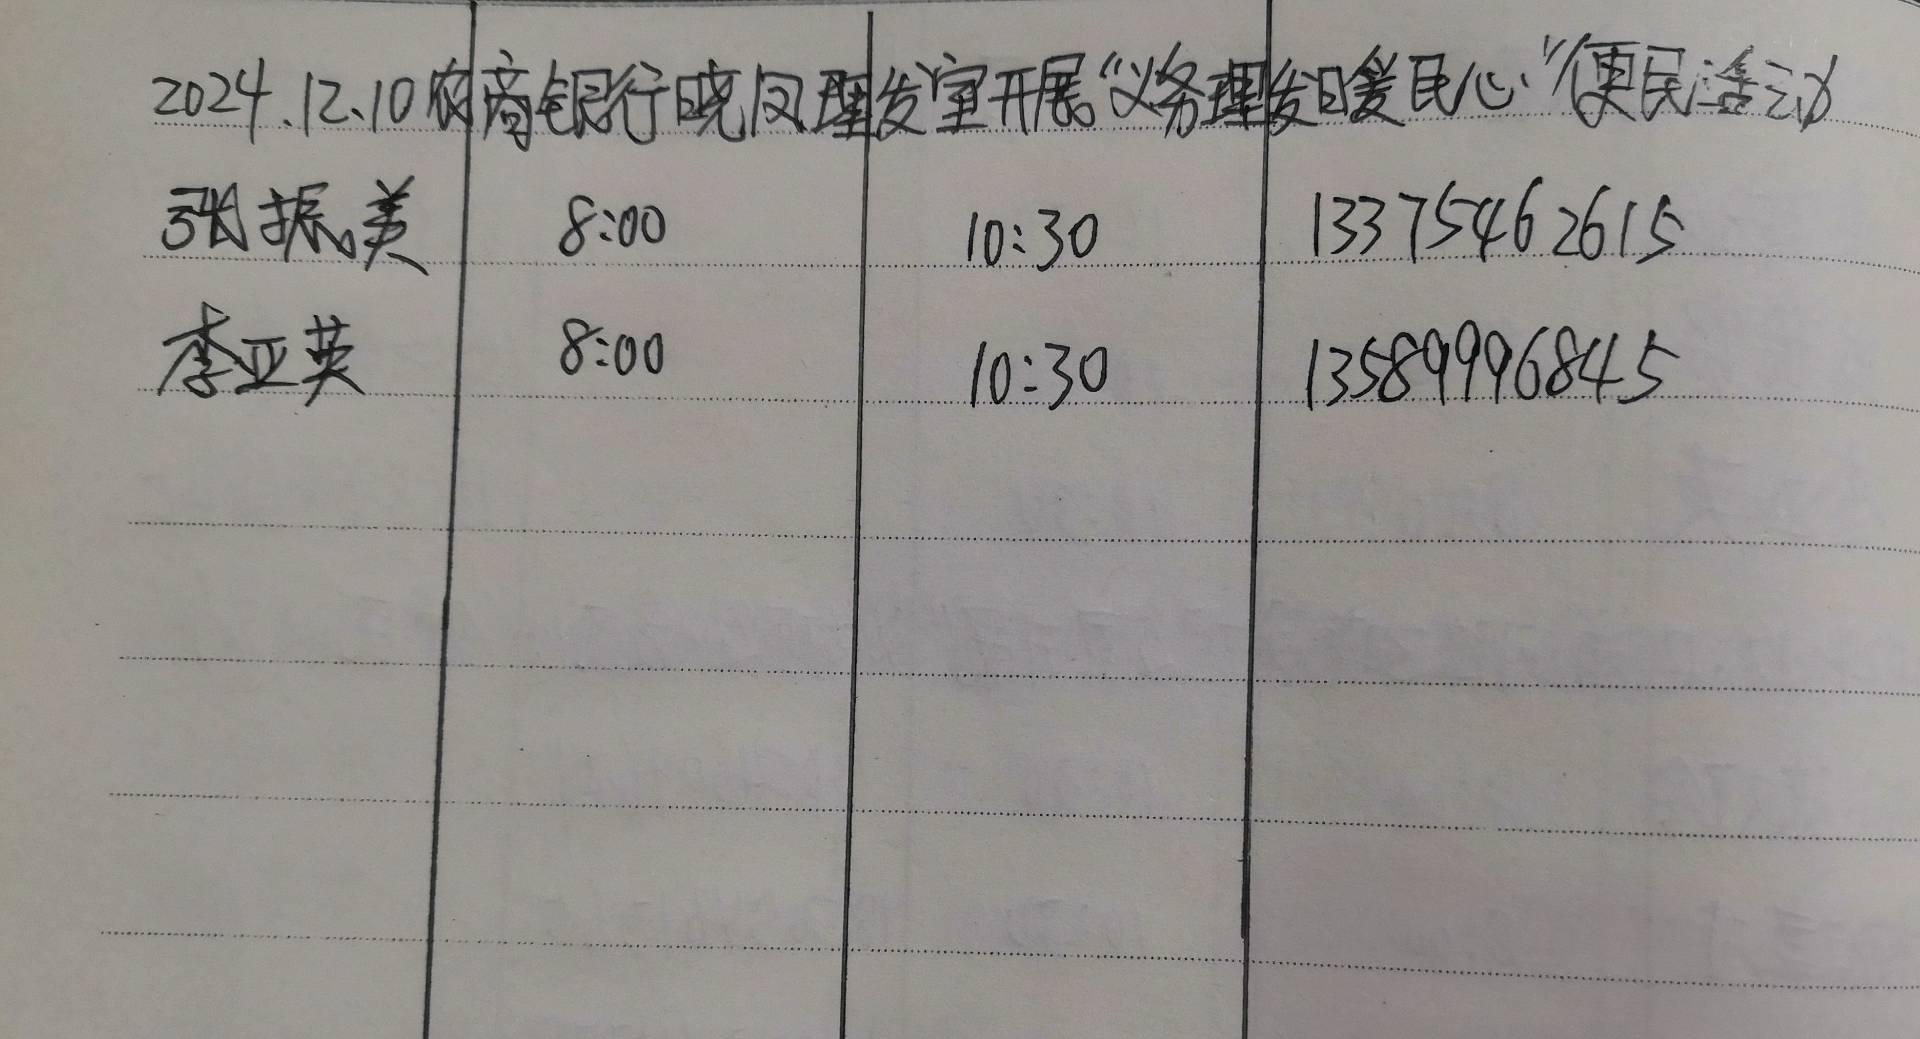 2024.12.10农商银行晓凤理发室开展“义务理发日暖民心”便民活动
张振美 8:00 10:30 13375462615
李亚英 8:00 10:30 13589996845